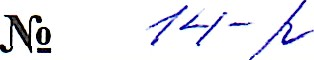 № 14-р